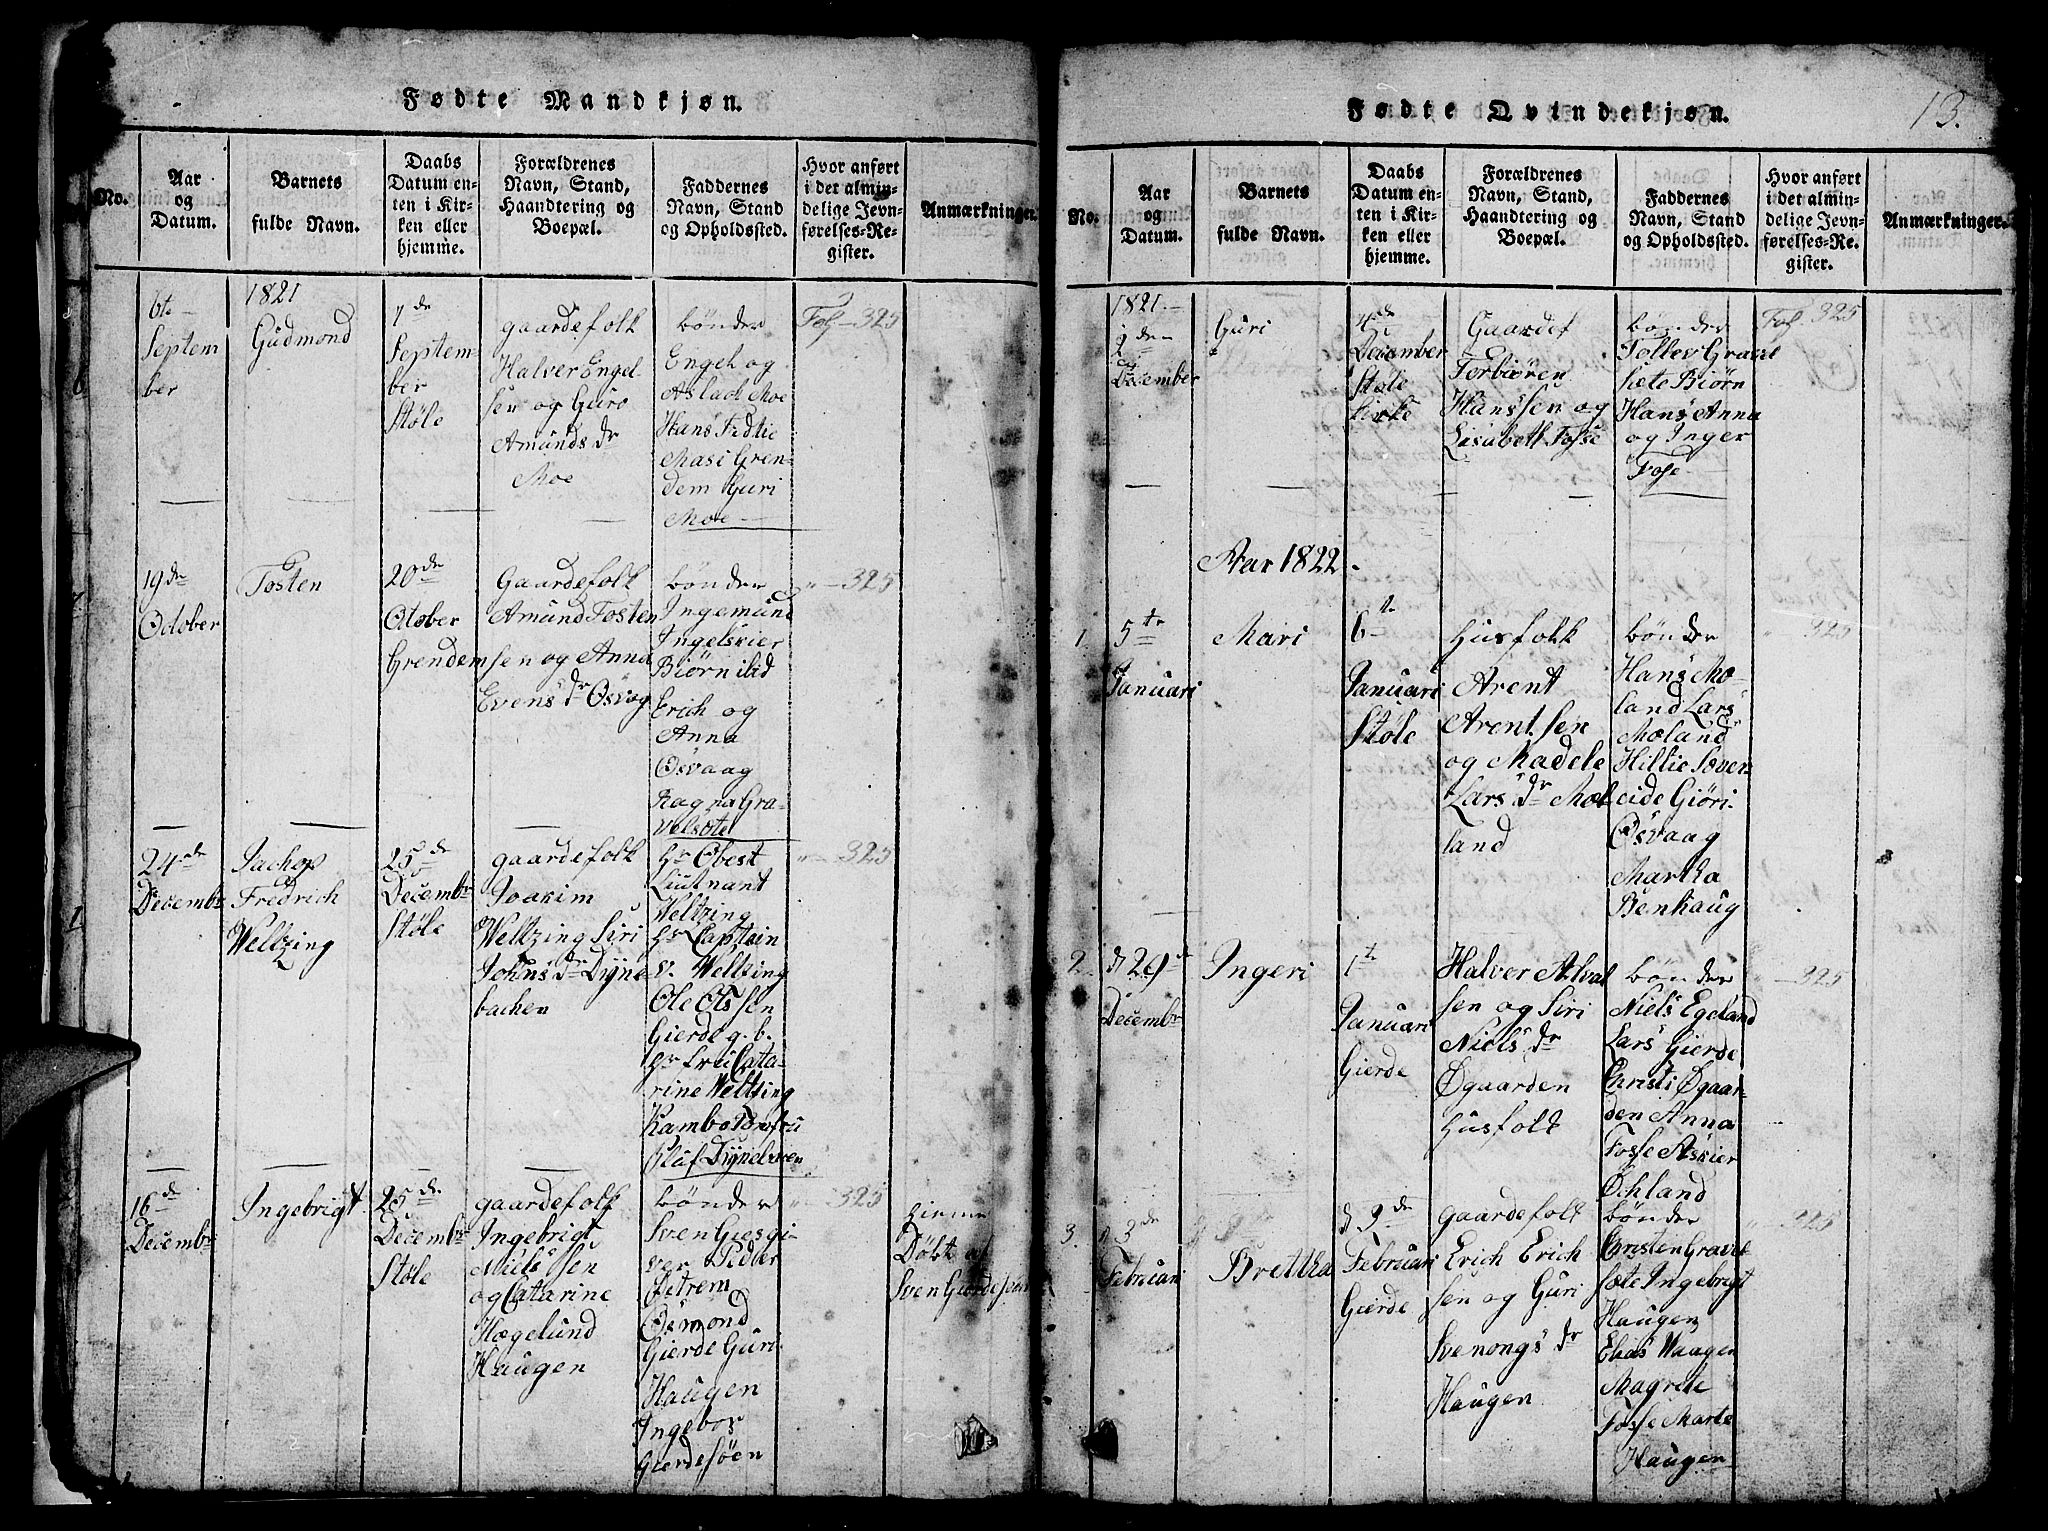 Fødte Mandkjøn.
No.
Aar
og
Datum.
Barnets
fulde Navn.
Daabs
Datum en-
ten i Kir-
ken eller
hjemme.
Forældrenes
Navn, Stand,
Haandtering og
Boepæl.
Faddernes
Navn, Stand
og Opholdssted.
Hvor anført
i det almin-
delige Jevn-
førelses-Re-
gister.
Anmærkninger.
6te
Septem
ber
1821
Gudmond
7de
Septem-
ber
Støle
gaardefolk
Halver Engel-
sen og Guro
Amunds dr
Moe
bønder
Engel og
Aslach Moe
Hans Fedtie
Masi Gren-
dem Guri
Moe
Fol. 325
19de
October
Tosten
20de
October
Grendem
Gaardefolk
Amund Tosten
sen og Anna
Evens dr Osvog
bønder
Ingemund
Ingelskier
Biørn ibid
Erich og
Anna
Osvaag
Ragna Gra-
velsæte
" 325
24de
Decembr
Jachop
Fredrich
Weltzing
25de
Decembr
Støle
gaardefolk
Joakim
Weltzing Siri
Johns dr Dyne
bachen
Hr Obest
Liutnant
Weltzing
Hr Captain
v. Weltzing
Ole Olssen
Gierde g. b.
Hr fru Cata-
rine Weltzing
Olaf Dynebacken
" 325
16de
Decembr
Ingebrigt
25de
Decembr
Støle
gaardefolk
Ingebrigt
Nielssen
og Catarine
Hægelund
Haugen
bønder
Sven Giesgi-
ver Pedter
Petrem
Osmond
Gierde Guri
Haugen
Ingebor
Gierdesøen
" 325
Hiemme
Døbt af
Sven Gierdesøen
Fødte Qvindekjøn.
13.
No.
Aar
og
Datum.
Barnets
fulde Navn.
Daabs
Datum en-
ten i Kir-
ken eller
hjemme.
Forældrenes
Navn, Stand,
Haandtering og
Boepæl.
Faddernes
Navn, Stand
og Opholdssted.
Hvor anført
i det almin-
delige Jevn-
førelses-Re-
gister.
Anmærkninger.
1821
December
Guri
4de
December
Støle
kirke
Gaardef
Torbiøren
Hanssen og
Lisabeth Fosse
bønder
Tollev Gravel
sæte Biørn
Hans Anna
og Inger
Fose
Fol. 325
Aar 1822
1.
5te
Januari
Mari
6te
Januari
Støle
Husfolk
Arent
Arentsen
og Madele
Lars dr Moe
land
bønder
Hans Mo-
land Lars
Moland
Hillie Sæver
eide Giøri
Osvaag
Martha
Benhaug
" 325
2.
d 29de
Decembr
Ingeri
1te
Januari
Gierde
Halver Alval
sen og Siri
Niels dr
Øgaarden
Husfolk
bønder
Niels Egeland
Lars Gierde
Christi Øgaar-
den Anna
Fosse Askier
Øchland
" 325
3.
d 3de
Februari
Brettha
d 9de
Februari
Gierde
gaardefolk
Erich Erich
sen og Guri
Svenongs dr
Haugen
bønder
Christen Gravel
sæte Ingebrigt
Haugen
Elias Haugen
Magrete
Fosse Marte
Haugen
" 325